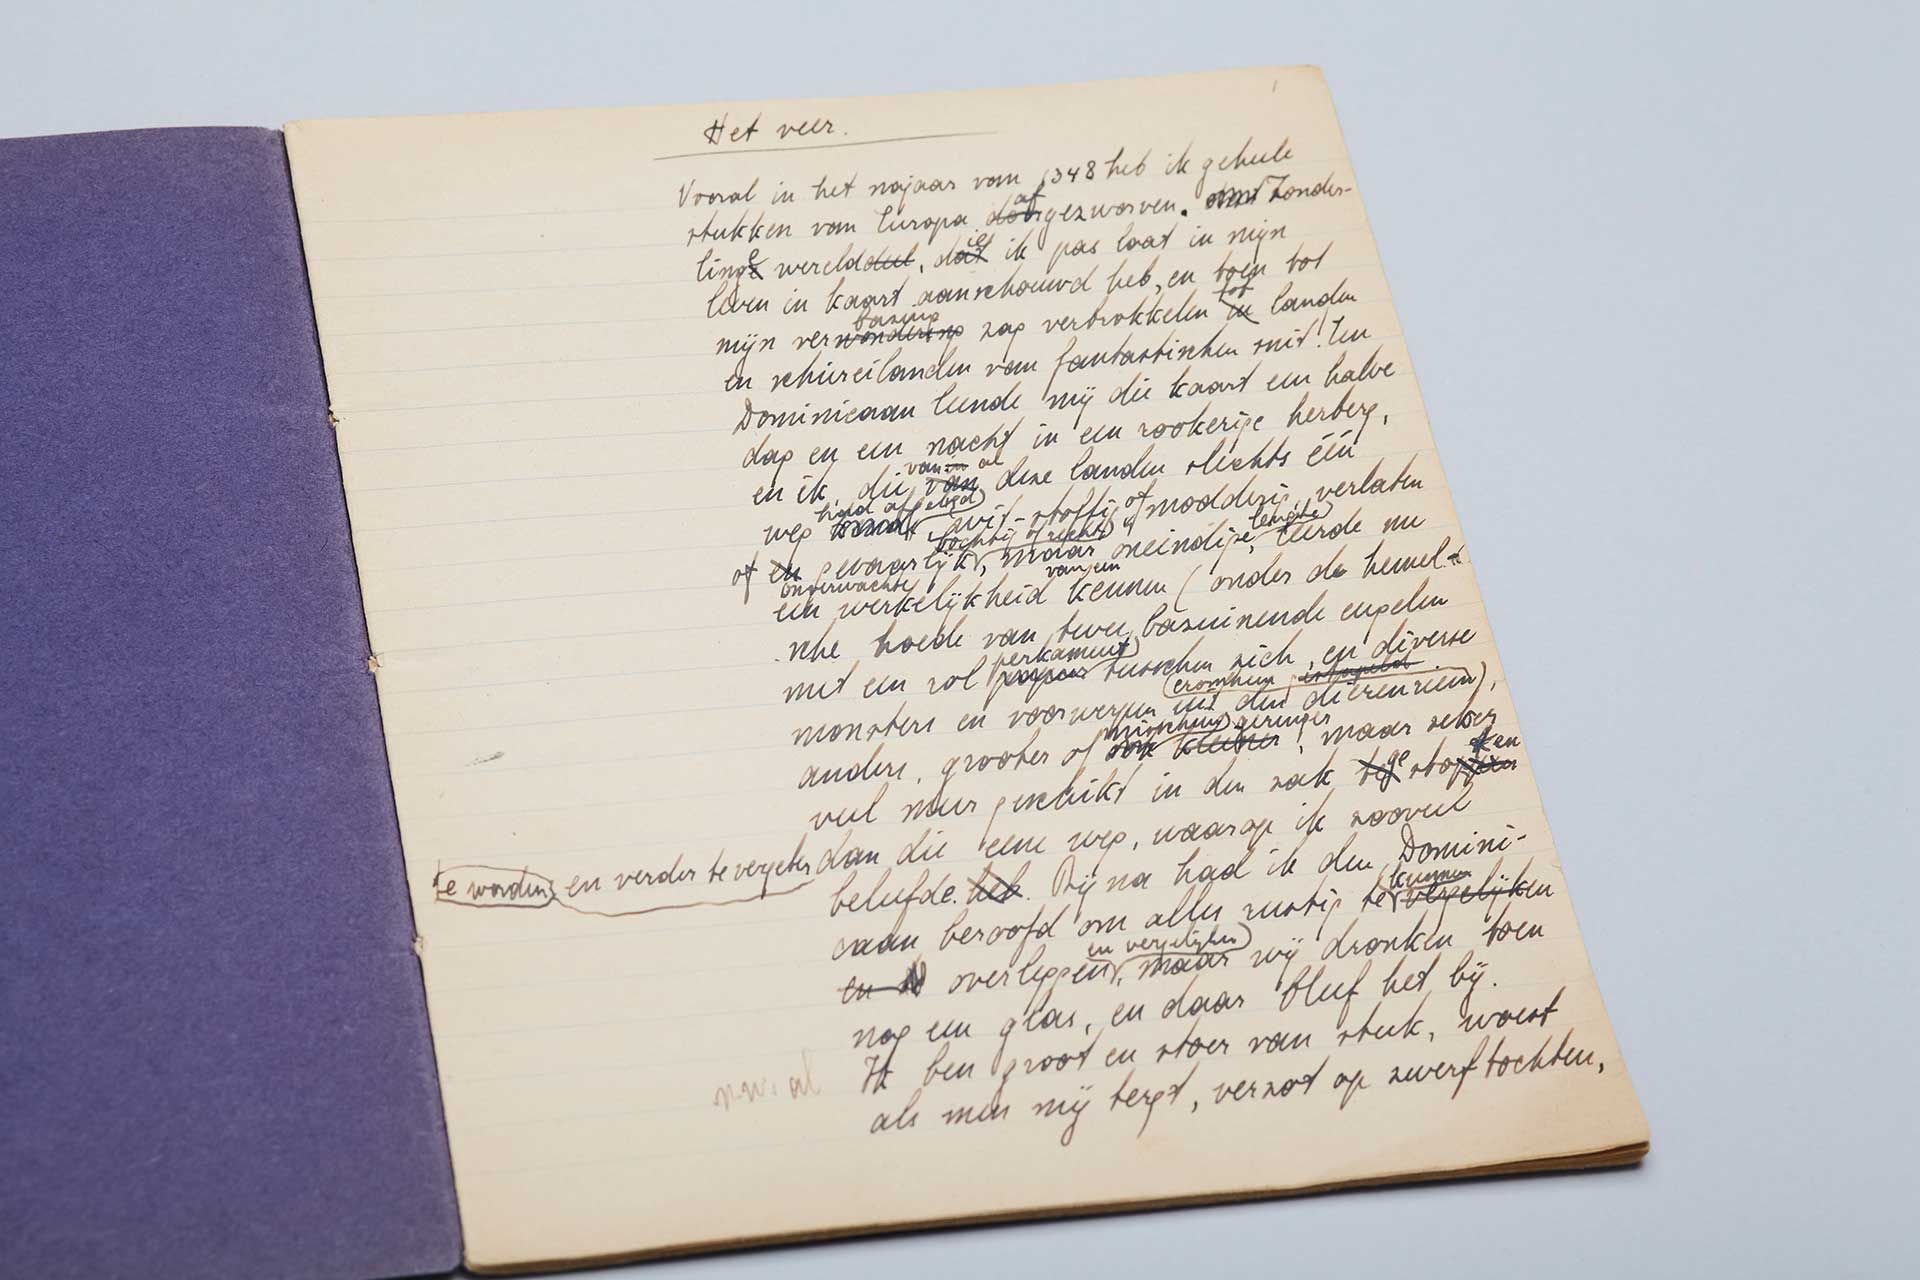 1
Het veer.
Vooral in het najaar van 1348 heb ik geheele
stukken van Europa door af gezworven. Zonder-
linge werelddeel, dat ie ik pas laat in mijn
leven in kaart aanschouwd heb, en toen tot
bazing
mijn verwondering zag verbrokkelen in tot landen
en schiereilanden van fantastischen snit! Een
Dominicaan leende mij die kaart een halve
dag en een nacht in een rookerige herberg,
van al
en ik, die van deze landen slechts één
had afgelegd
weg wit-stoffig of modderig, verlaten
bochtig of recht
of en gevaarlijk, maar oneindige, leerde nu
onverwachte van een
een werkelijkheid kennen (onder de hemel-
sche hoede van twee bazuinende engelen
perkament
met een rol papier tusschen zich, en diverse
monsters en voorwerpen uit den dierenriem),
misschien geringer
anders, grooter of ook kleiner, maar zeker
ge ken
veel meer geschikt in den zak te stoppen
te worden, en verder te vergeten dan die eene weg, waarop ik zooveel
beleefde heb. Bijna had ik den Domini-
kunnen
caan beroofd om alles rustig te vergelijken
en vergelijken
en overleggen, maar wij dronken toen
nog een glas, en daar bleef het bij.
Ik ben groot en stoer van stuk, woest
als men mij tergt, verzot op zwerftochten,